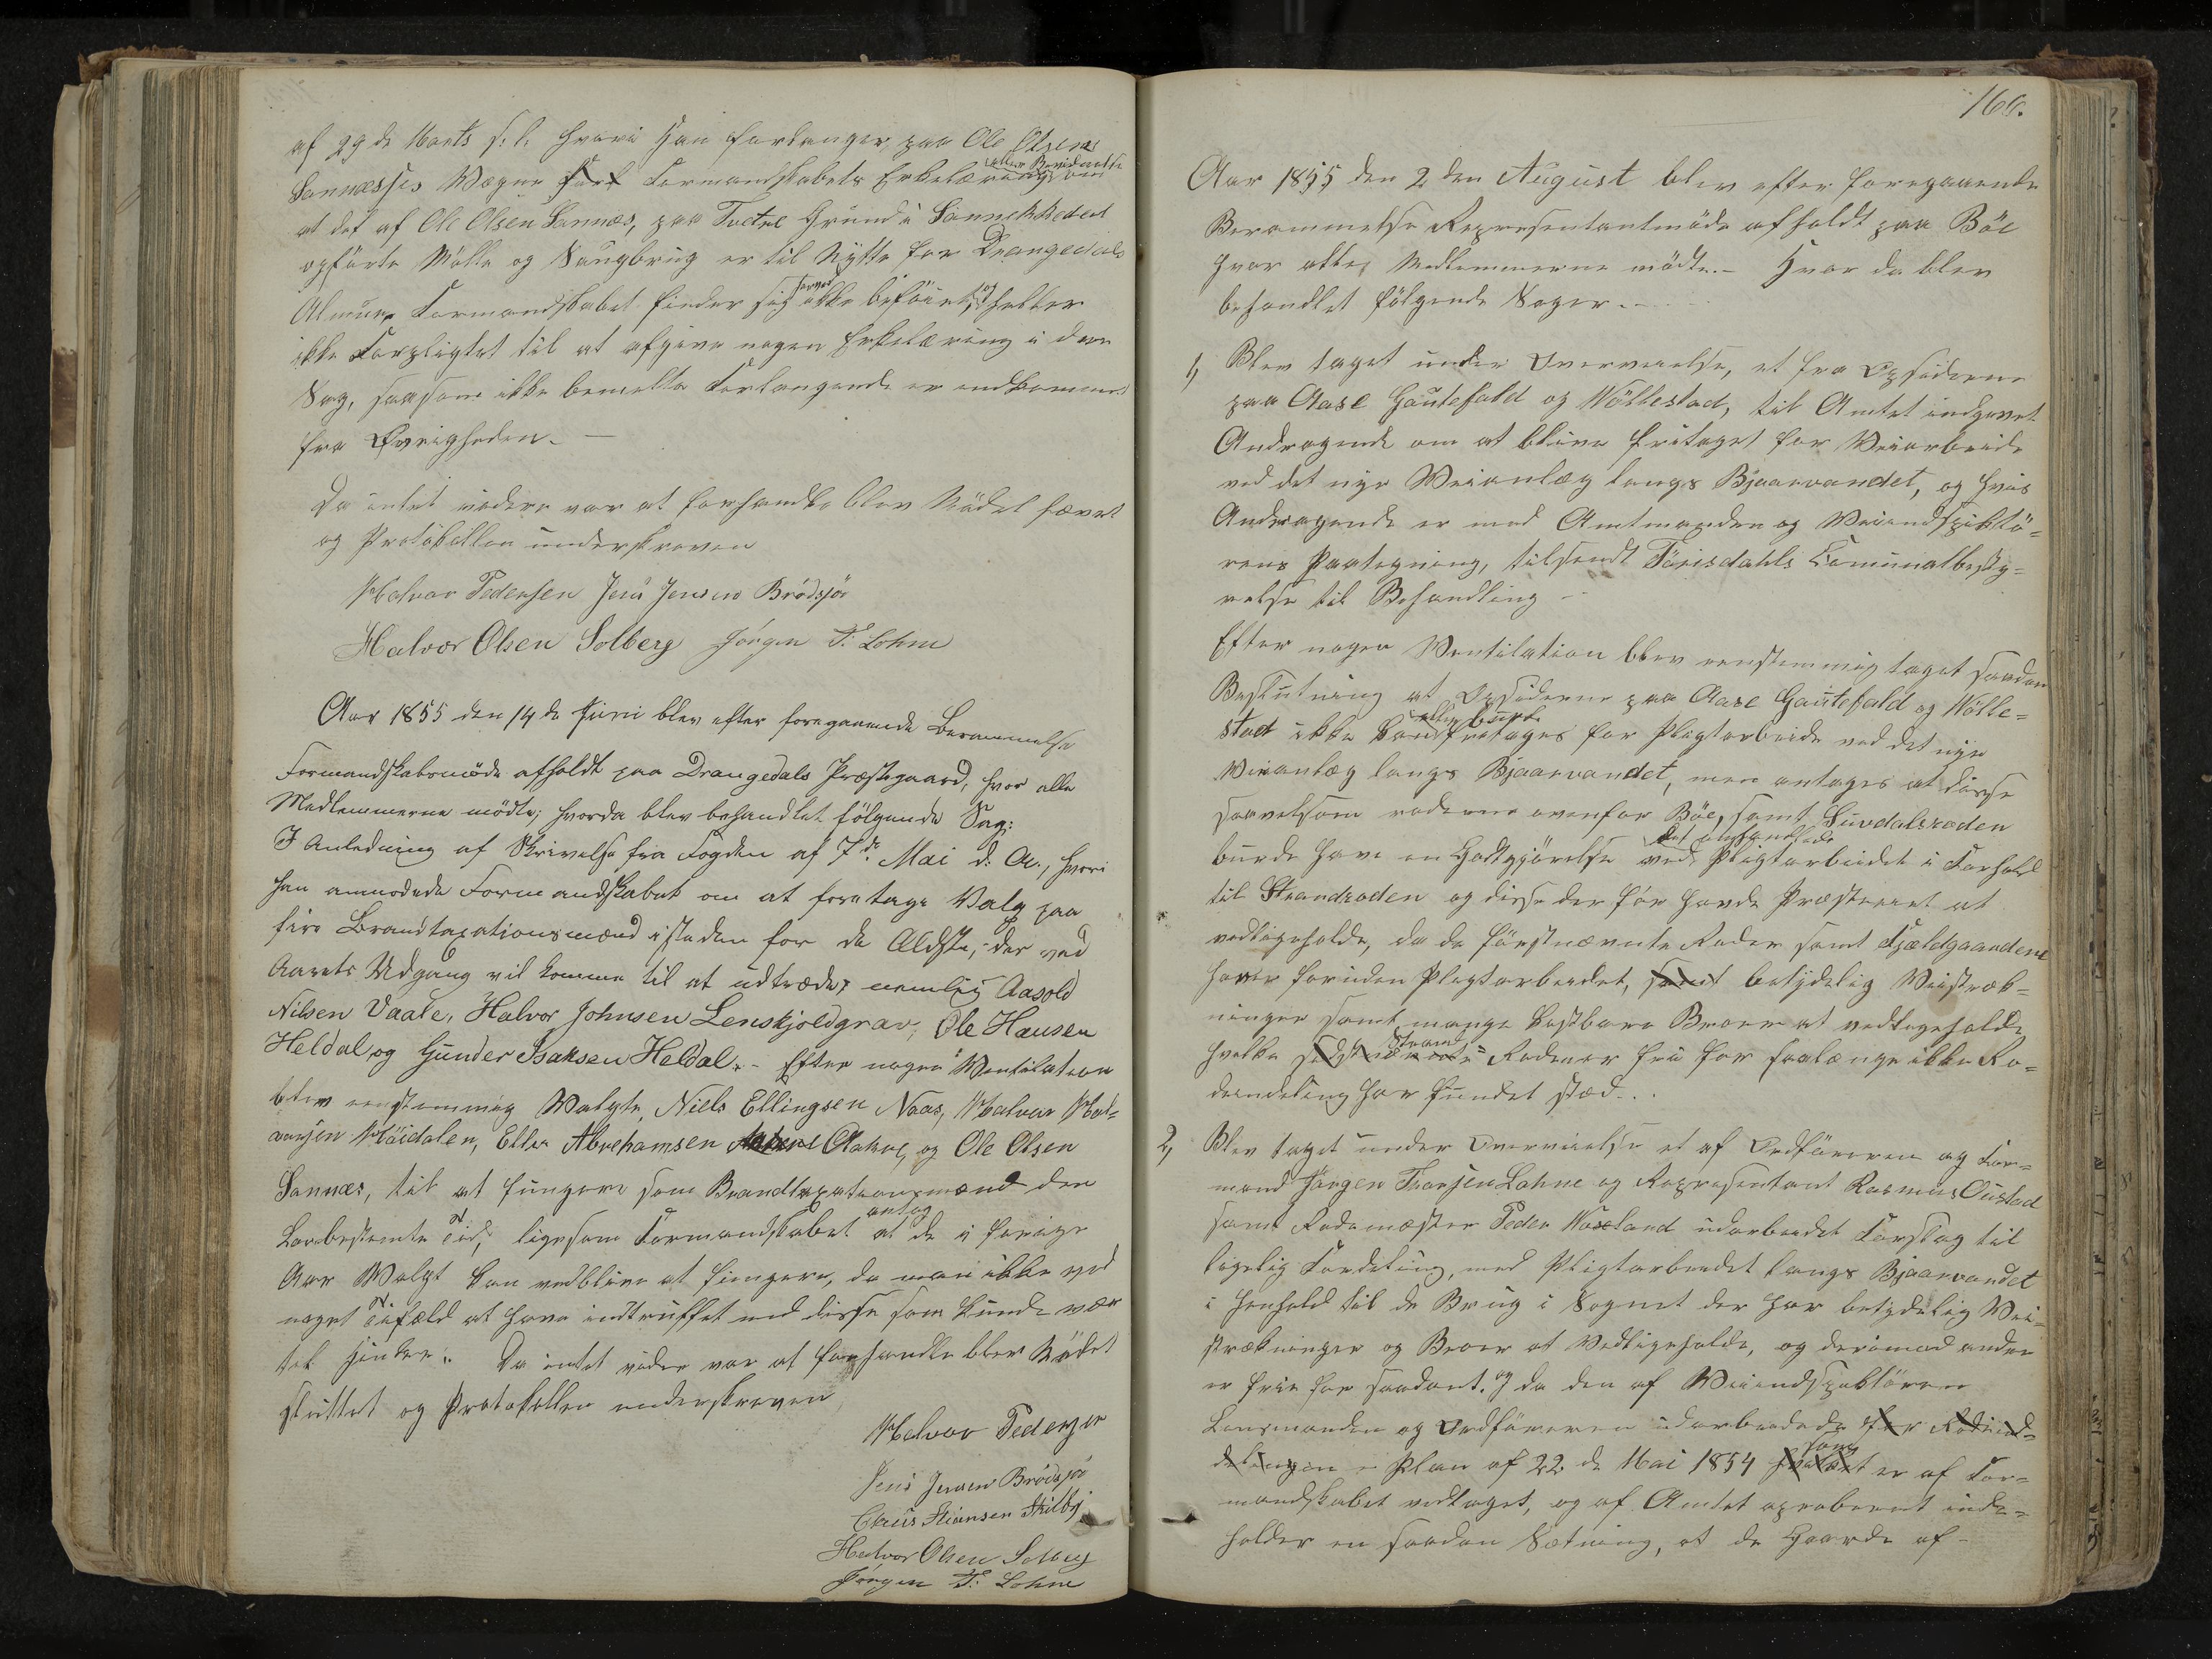 af 29de Marts s: l. hvori Han forlanger, paa Ole Olsens
Sannæsses Wegne Formandskabets Erkelæring eller Bevidnelse om
at det af Ole Olsen Sannæs, paa Tvetne Grund i Sannekkedet
opførte Mølle og Saugbrug er til Nytte for Drangedals
Almue, Formandskabet finder sig ikke beføiet, og heller
ikke Forpligtet til at afgive nogen Erkelæring i den
Sag, saasom ikke bemelte Forlangende er indkommen
fra Øvrigheden. —
Da intet videre var at forhandle blev Mödet hævet
og Protokollen underskreven
Halvor Pedersen Jens Jensen Brödsjöe
Halvor Olsen Solberg Jörgen T. Lohne
Aar 1855 den 14de Juni blev efter foregaaende Berammelse
Formandskabsmöde afholdt paa Drangedals Præstegaard, hvor alle
Medlemmerne mödte; hvorda blev behandlet fölgende Sag:
I Anledning af Skrivelse fra Fogden af 7de Mai d: A:, hvori
han anmodede Formandskabet om at foretage Valg paa
fire Brandtaxationsmænd istæden for de Ældste, der ved
Aarets Udgang vil komme til at udtræde, nemlig Aasold
Nilsen Vaale, Halvor Johnsen Lenskjoldgrav, Ole Hansen
Heldal og Gunder Isaksen Heldal. – Efter nogen Ventilation
blev eenstemmig Valgte, Niels Ellingsen Naas, Halvor Hal=
vorsen Höidalen, Ellev Abrehamsen Aakre, og Ole Olsen
Sannæs, til at fungere som Brandtaxationsmænd den
Lovbestemte Tid, ligesom Formandskabet antog at de i forrige
Aar Valgt kan vedblive at fungere, da man ikke ved
noget Tilfæld at have indtruffet med disse som kunde være
til Hinder. Da intet videre var at forhandle blev Mödet
sluttet og Protokollen underskreven
Halvor Pedersen
Jens Jensen Brödsjö
Claus Stiansen Skilbj
Halvor Olsen Solberg
Jörgen T: Lohne
166.
Aar 1855 den 2den August blev efter foregaaende
Berammelse Representantmöde afholdt paa Böe
hvor alle Medlemmerne mödte. – Hvor da blev
behandlet fölgende Sager. –
1, Blev taget under Overveielse, et fra Opsiderne
paa Aase Gautefald og Wöllestad, til Amtet indgivet
Andragende om at blive fritaget for Veiarbeide
ved det nye Veianlæg langs Bjaarvandet, og hvis
Andragende er med Amtmanden og Veiindspektö=
rens Paategning, tilsendt Törisdahls Comunalbesty=
relse til Behandling –
Efter nogen Ventilation blev eenstemmig taget saadan
Beslutning at Opsiderne paa Aase Gautefald og Wölle=
stad ikke kan eller burde fritages for Pligtarbeide ved det nye
Veianlæg langs Bjaarvandet, men antages at disse
saavelsom roderne ovenfor Böe, samt Suvdalsroden
burde have en Godtgjörelse ved det omhandlede Pligtarbeidet i Forhold
til Strandroden og disse der för havde Præsteveiet at
vedligeholde, da de förstnævnte Roder samt Fjældgaardene
haver foruden Pligtarbeidet, betydelig Veistræk=
ninger samt mange kostbare Broer at vedligeholde
hvilke Strand= Roden er fri for saalænge ikke Ro=
deindeling har fundet sted. . .
2, Blev taget under Overveielse et af Ordföreren og For=
mand Jörgen Thorsen Lohne og Representant Rasmus Oustad
samt Rodemester Peder Woxland udarbeidet Forslag til
ligelig Fordeling, med Pligtarbeidet langs Bjaarvandet
i Henhold til de Brug i Sognet der har betydelig Vei=
strækninger og Broer at Vedligeholde, og derimod andre
er frie for saadant. og da den af Veiindspektören
Lensmanden og Ordföreren udarbeidede for Rodeind=
delingen i Plan af 22de Mai 1854 som er af For=
mandskabet vedtaget, og af Amtet aproberet inde=
holder en saadan Sætning, at de Gaarde af –